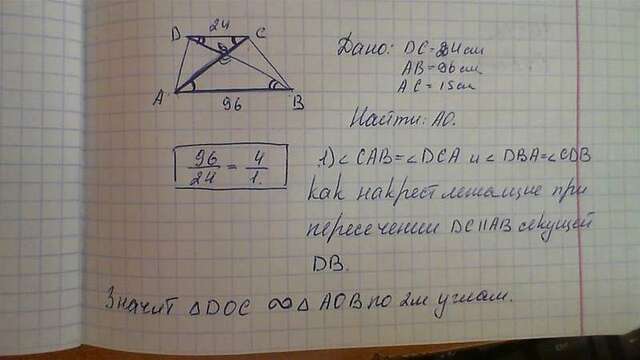 24
D C
O
A B
96
Дано: DC=24см
AB=96см
AC=15см
Найти: AO.
96/24 = 4/1.
1) ∠CAB=∠DCA и ∠DBA=∠CDB
как накрест лежащие при
пересечении DC||AB секущей
DB.
Значит △DOC ∞ △AOB по 2м углам.